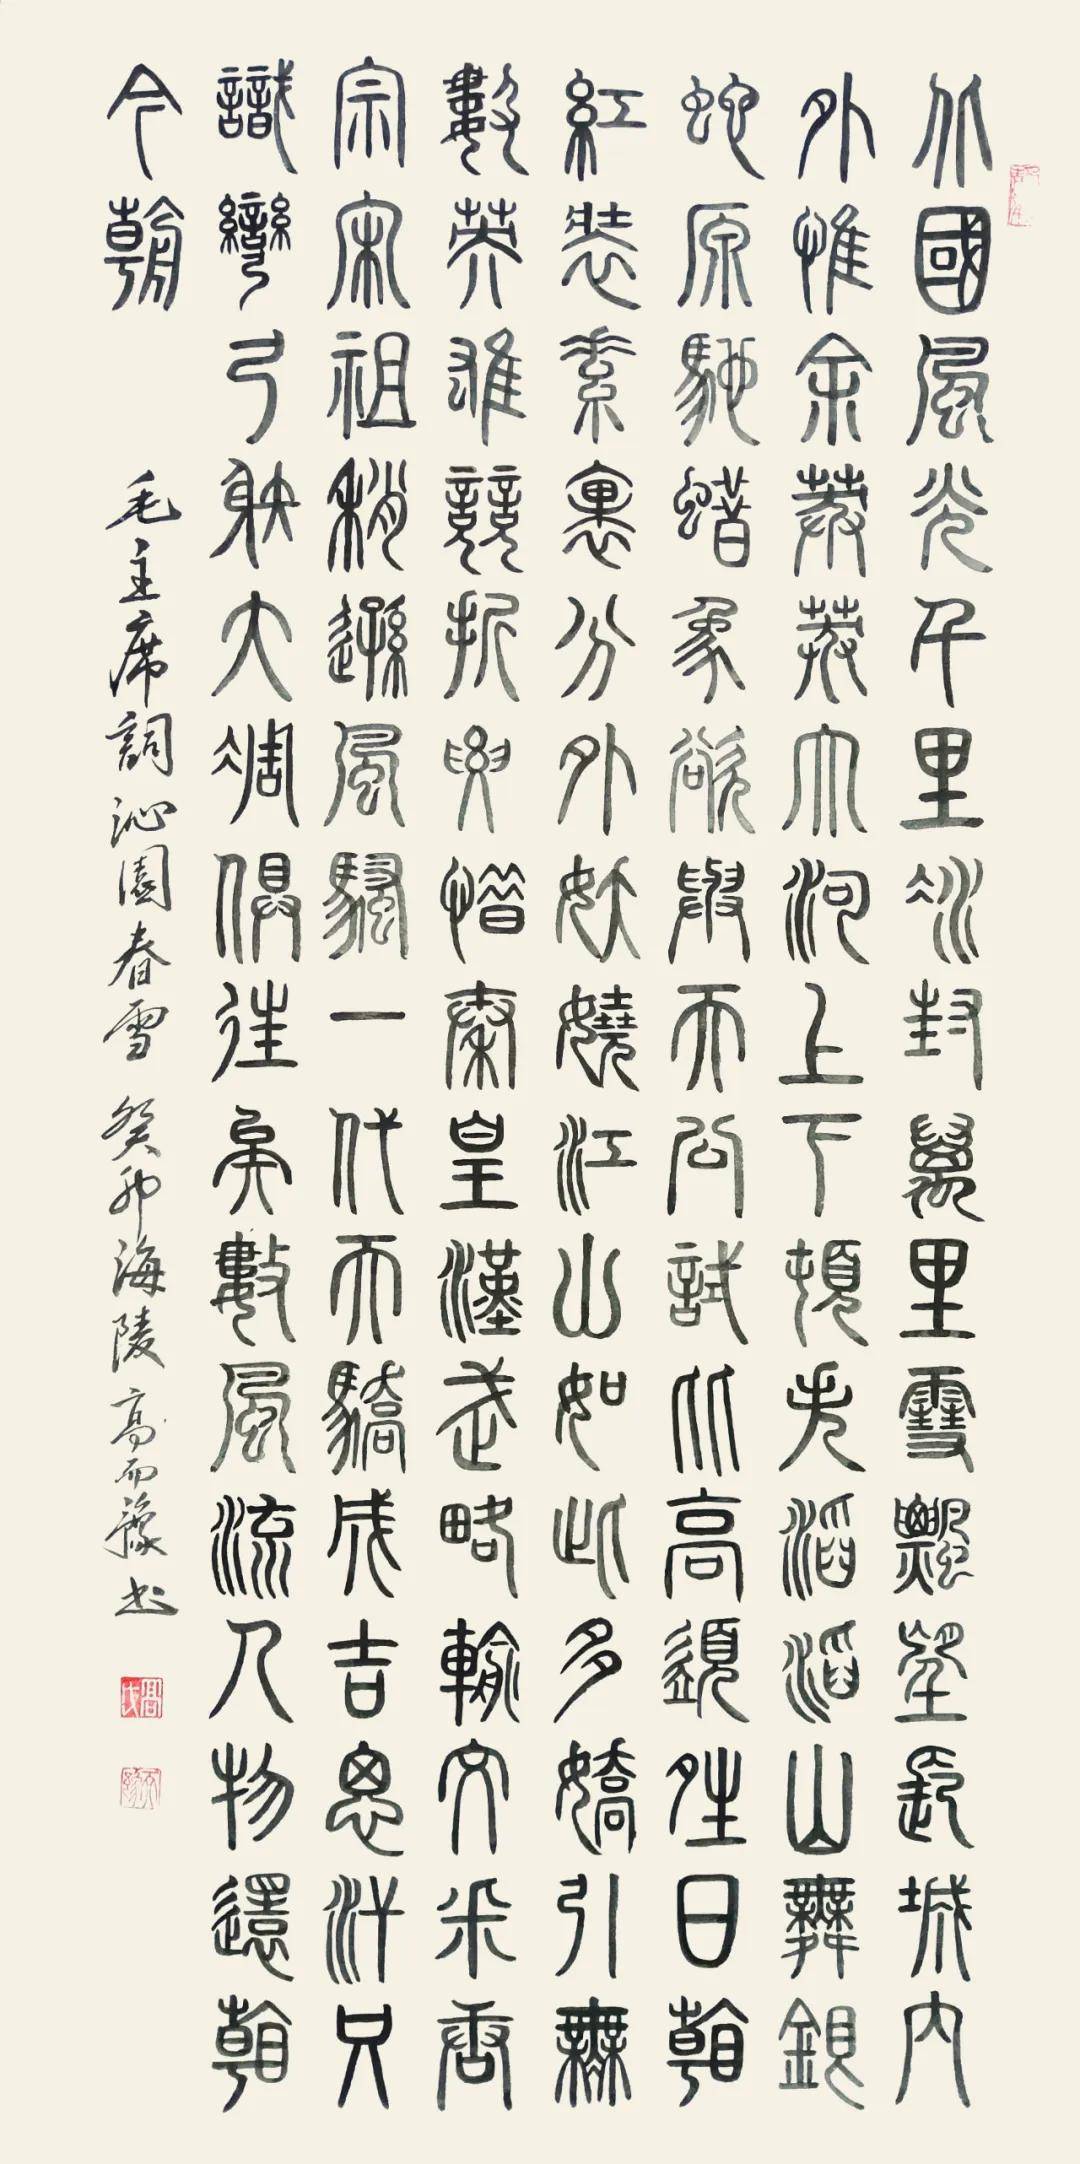 北國風光千里冰封萬里雪飄望長城內
外惟余莽莽大河上下頓失滔滔山舞銀
蛇原馳蜡象欲與天公試比高須晴日看
紅裝素裹分外妖嬈江山如此多嬌引無
數英雄競折腰惜秦皇漢武略輸文采唐
宗宋祖稍遜風騷一代天驕成吉思汗只
識彎弓射大雕俱往矣數風流人物還看
今朝
毛主席詞沁園春雪 癸卯海陵高而豫书